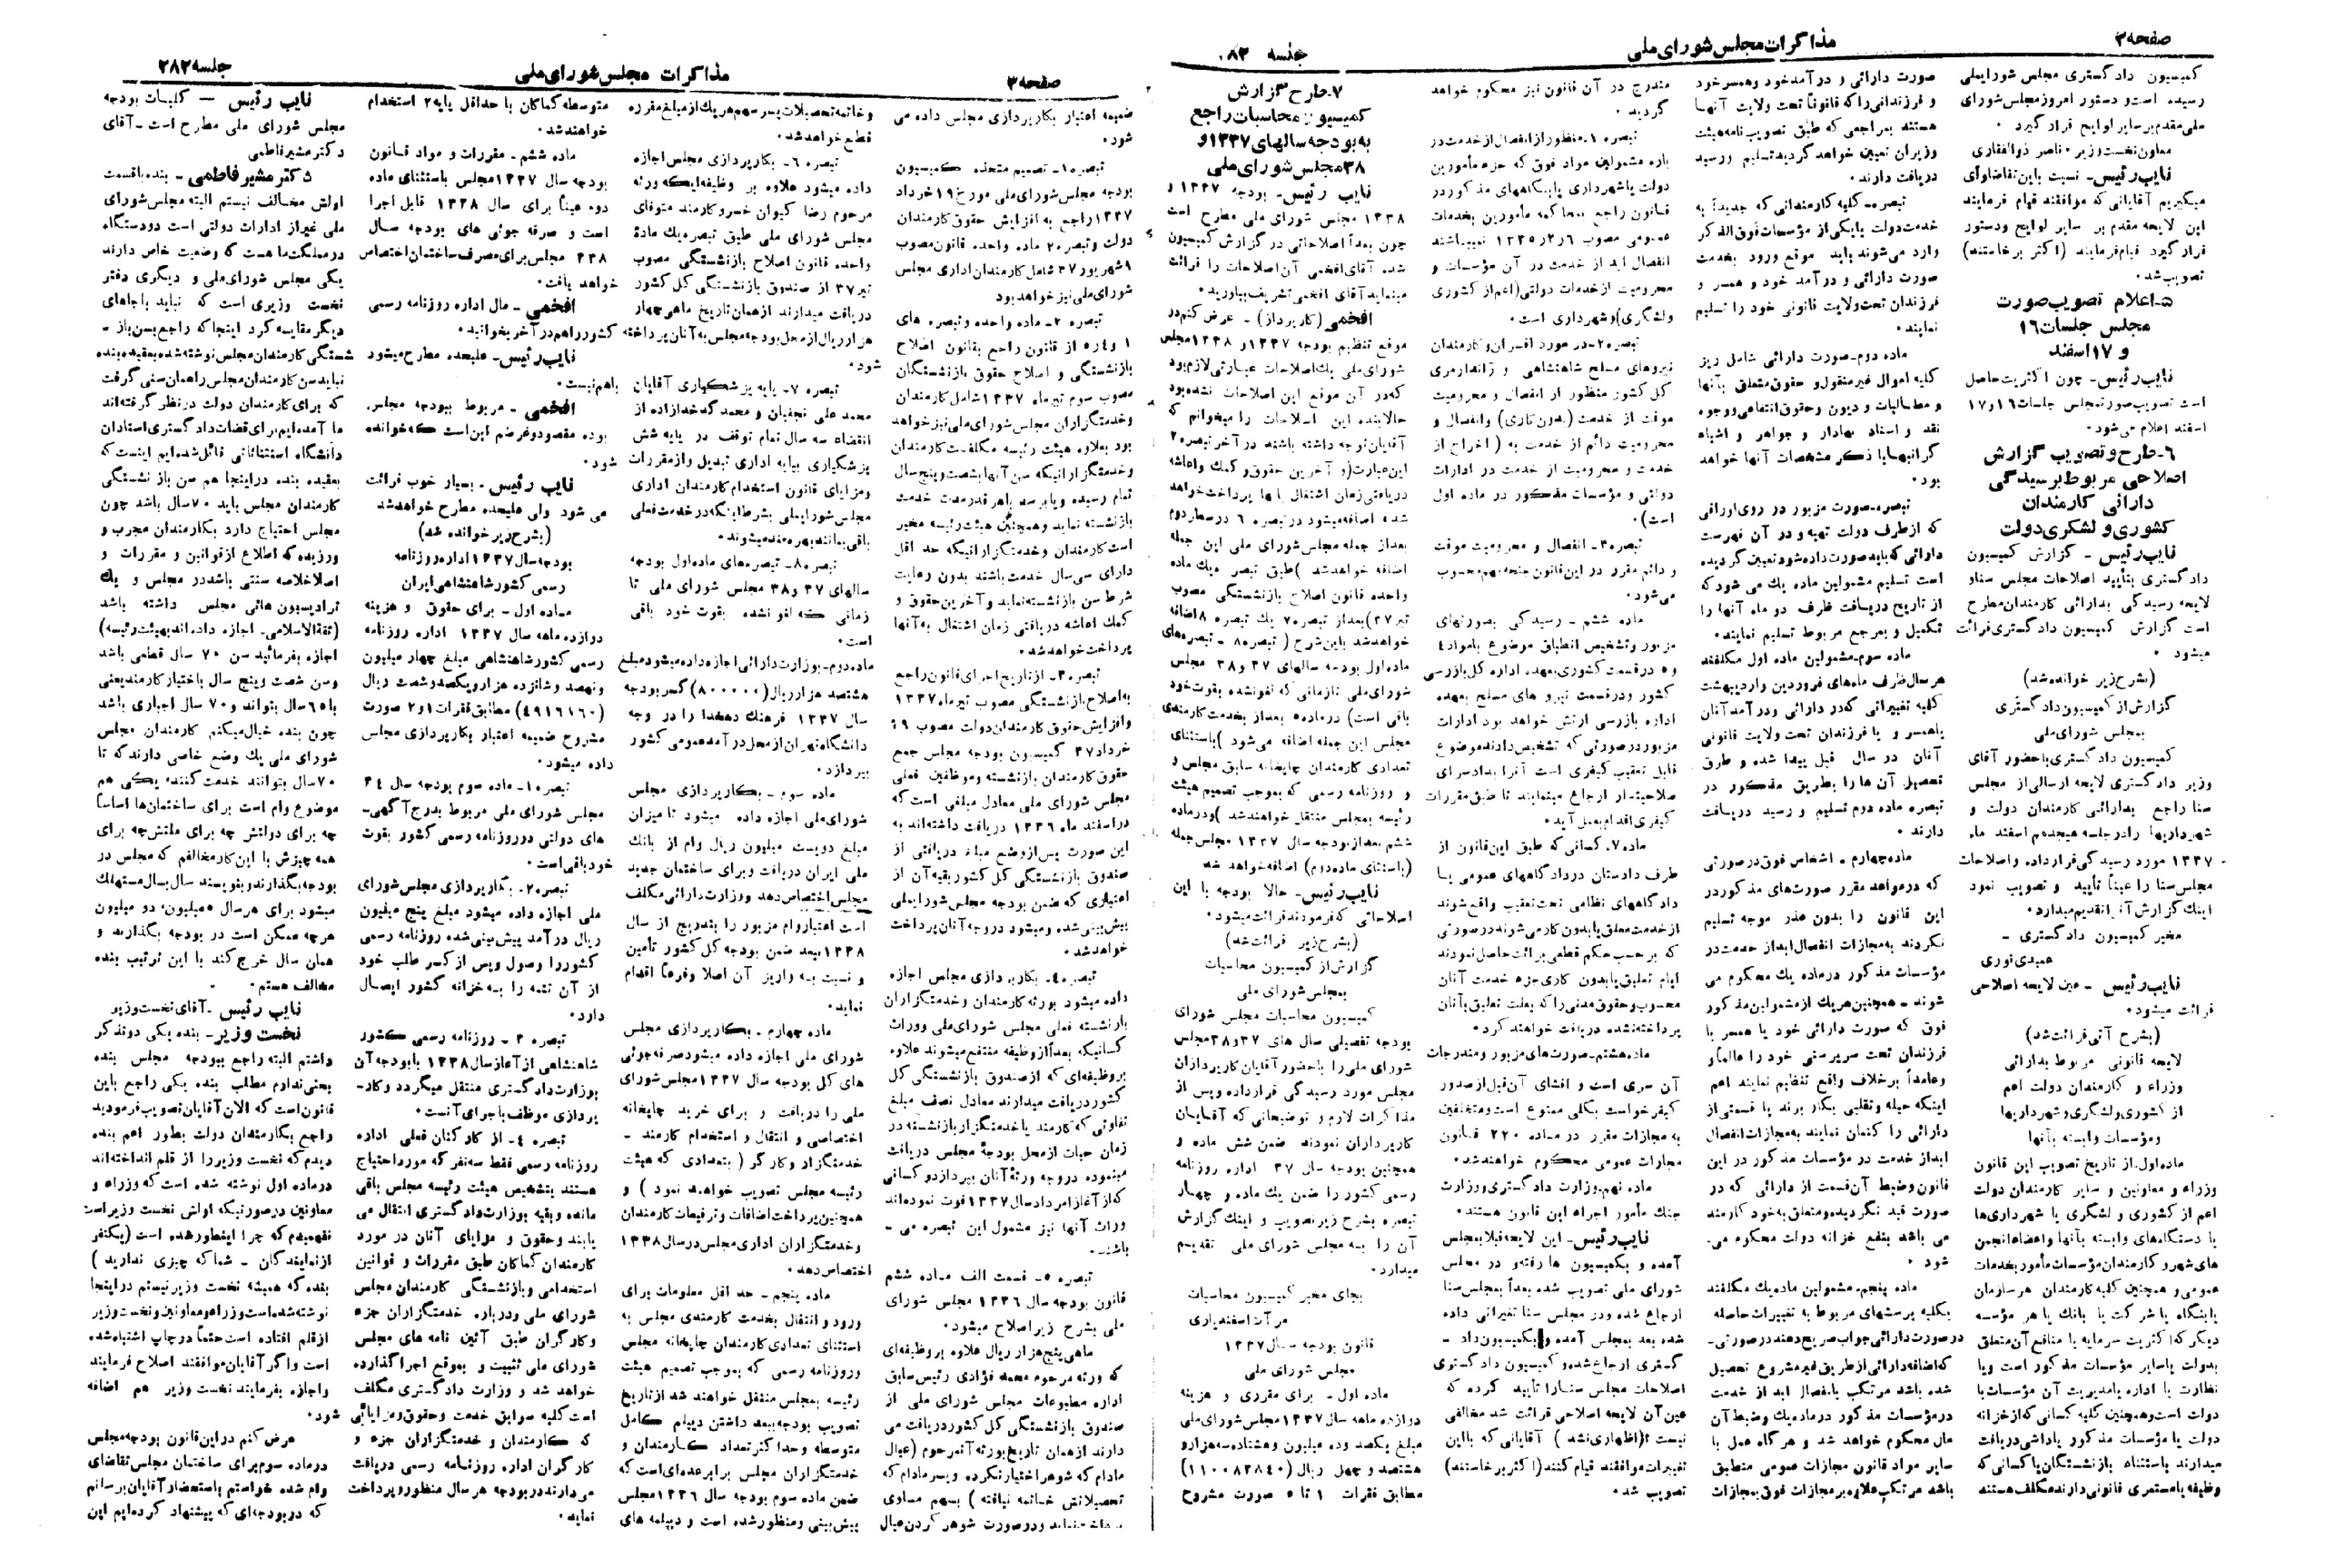 صفحه ۲
مذاکرات مجلس شورای ملی
جلسه ۲۸۲
کمیسیون دادگستری مجلس شورایملی
رسیده است و دستور امروز مجلس شورای
ملی مقدم بر سایر لوایح قرار گیرد .
معاون نخست وزیر - ناصر ذوالفقاری
نایب رئیس - نسبت باین تقاضا رأی
میگیریم آقایانی که موافقند قیام فرمایند
این لایحه مقدم بر سایر لوایح و دستور
قرار گیرد قیام فرمایند (اکثر برخاستند)
تصویب شد .
۵- اعلام تصویب صورت
مجلس جلسات ۱۶
و ۱۷ اسفند
نایب رئیس - چون اکثریت حاصل
است تصویب صورتمجلس جلسات ۱۶ و ۱۷
اسفند اعلام می‌شود .
۶- طرح و تصویب گزارش
اصلاحی مربوط برسیدگی
دارائی کارمندان
کشوری و لشکری دولت
نایب رئیس - گزارش کمیسیون
دادگستری بتأیید اصلاحات مجلس سنا و
لایحه رسیدگی بدارائی کارمندان مطرح
است گزارش کمیسیون دادگستری قرائت
میشود .
(بشرح زیر خوانده شد)
گزارش از کمیسیون دادگستری
بمجلس شورای ملی
کمیسیون دادگستری با حضور آقای
وزیر دادگستری لایحه ارسالی از مجلس
سنا راجع بدارائی کارمندان دولت و
شهرداریها را در جلسه هیجدهم اسفند ماه
۱۳۳۷ مورد رسیدگی قرار داده و اصلاحات
مجلس سنا را عیناً تأیید و تصویب نمود
اینک گزارش آنرا تقدیم میدارد .
مخبر کمیسیون دادگستری -
عمیدی نوری
نایب رئیس - عین لایحه اصلاحی
قرائت میشود .
(بشرح آتی قرائت شد)
لایحه قانونی مربوط بدارائی
وزراء و کارمندان دولت اعم
از کشوری و لشگری و شهرداریها
و مؤسسات وابسته بآنها
ماده اول - از تاریخ تصویب این قانون
وزراء و معاونین و سایر کارمندان دولت
اعم از کشوری و لشگری یا شهرداری‌ها
یا دستگاههای وابسته بآنها و اعضاء انجمن
های شهر و کارمندان مؤسسات مأمور بخدمات
عمومی و همچنین کلیه کارمندان هر سازمان
یا بنگاه یا شرکت یا بانک یا هر مؤسسه
دیگر که اکثریت سرمایه یا منافع آن متعلق
بدولت یا سایر مؤسسات مذکور است و یا
نظارت یا اداره یا مدیریت آن مؤسسات با
دولت است و همچنین کلیه کسانی که از خزانه
دولت یا مؤسسات مذکور پاداشی دریافت
میدارند باستثناء بازنشستگان یا کسانی که
وظیفه یا مستمری قانونی دارند مکلف هستند
صورت دارائی و درآمد خود و همسر خود
و فرزندانی را که قانوناً تحت ولایت آنها
هستند بمراجعی که طبق تصویب نامه هیئت
وزیران تعیین خواهد گردید تسلیم و رسید
دریافت دارند .
تبصره - کلیه کارمندانی که جدیداً به
خدمت دولت یا یکی از مؤسسات فوق الذکر
وارد می‌شوند باید موقع ورود بخدمت
صورت دارائی و درآمد خود و همسر و
فرزندان تحت ولایت قانونی خود را تسلیم
نمایند .
ماده دوم - صورت دارائی شامل ریز
کلیه اموال غیر منقول و حقوق متعلق بآنها
و مطالبات و دیون و حقوق انتفاعی و وجوه
نقد و اسناد بهادار و جواهر و اشیاء
گرانبها با ذکر مشخصات آنها خواهد
بود .
تبصره - صورت مزبور در روی اوراقی
که از طرف دولت تهیه و در آن فهرست
دارائی که باید صورت داده شود تعیین گردیده
است تسلیم مشمولین ماده یک می شود که
از تاریخ دریافت ظرف دو ماه آنها را
تکمیل و بمرجع مربوط تسلیم نمایند .
ماده سوم - مشمولین ماده اول مکلفند
هر سال ظرف ماه‌های فروردین و اردیبهشت
کلیه تغییراتی که در دارائی و درآمد آنان
یا همسر و یا فرزندان تحت ولایت قانونی
آنان در سال قبل پیدا شده و طرق
تحصیل آن ها را بطریق مذکور در
تبصره ماده دوم تسلیم و رسید دریافت
دارند .
ماده چهارم - اشخاص فوق در صورتی
که در مواعد مقرر صورت‌های مذکور در
این قانون را بدون عذر موجه تسلیم
نکردند به مجازات انفصال ابد از خدمت در
مؤسسات مذکور در ماده یک محکوم می
شوند - همچنین هر یک از مشمولین مذکور
فوق که صورت دارائی خود یا همسر یا
فرزندان تحت سرپرستی خود را عالماً و
و عامداً بر خلاف واقع تنظیم نمایند اعم
اینکه حیله و تقلبی بکار برند یا قسمتی از
دارائی را کتمان نمایند به مجازات انفصال
ابد از خدمت در مؤسسات مذکور در این
قانون و ضبط آن قسمت از دارائی که در
صورت قید نگردیده و متعلق به خود کارمند
می باشد بنفع خزانه دولت محکوم می‌
شود .
ماده پنجم - مشمولین ماده یک مکلفند
بکلیه پرسشهای مربوط به تغییرات حاصله
در صورت دارائی جواب صریح دهند در صورتی -
که اضافه دارائی از طریق غیر مشروع تحصیل
شده باشد مرتکب بانفصال ابد از خدمت
در مؤسسات مذکور در ماده یک و ضبط آن
مال محکوم خواهد شد و هر گاه عمل با
سایر مواد قانون مجازات عمومی منطبق
باشد مرتکب علاوه بر مجازات فوق بمجازات
مندرج در آن قانون نیز محکوم خواهد
گردید .
تبصره ۱ - منظور از انفصال از خدمت در
باره مشمولین مواد فوق که جزء مأمورین
دولت یا شهرداری یا بنگاههای مذکور در
قانون راجع بمحاکمه مأمورین بخدمات
عمومی مصوب ۶ر۲ر۱۳۳۵ نمیباشند
انفصال ابد از خدمت در آن مؤسسات و
محرومیت از خدمات دولتی (اعم از کشوری
و لشگری) و شهرداری است .
تبصره ۲ - در مورد افسران و کارمندان
نیروهای مسلح شاهنشاهی و ژاندارمری
کل کشور منظور از انفصال و محرومیت
موقت از خدمت (بدون کاری) و انفصال و
محرومیت دائم از خدمت به ( اخراج از
خدمت و محرومیت از خدمت در ادارات
دولتی و مؤسسات مذکور در ماده اول
است) .
تبصره ۳ - انفصال و محرومیت موقت
و دائم مقرر در این قانون جنحه مهم محسوب
می‌شود .
ماده ششم - رسیدگی بصورتهای
مزبور و تشخیص انطباق موضوع با مواد ۴
و ۵ در قسمت کشوری بعهده اداره کل بازرسی
کشور و در قسمت نیرو های مسلح بعهده
اداره بازرسی ارتش خواهد بود ادارات
مزبور در صورتی که تشخیص دادند موضوع
قابل تعقیب کیفری است آنرا بدادسرای
صلاحیتدار ارجاع مینمایند تا طبق مقررات
کیفری اقدام بعمل آید .
ماده ۷ - کسانی که طبق این قانون از
طرف دادستان در دادگاههای عمومی یا
دادگاههای نظامی تحت تعقیب واقع شوند
از خدمت معلق یا بدون کار می‌شوند در صورتی
که بر حسب حکم قطعی برائت حاصل نمودند
ایام تعلیق یا بدون کاری جزء خدمت آنان
محسوب و حقوق مدتی را که بعلت تعلیق بآنان
پرداخته نشده دریافت خواهند کرد .
ماده هشتم - صورت‌های مزبور و مندرجات
آن سری است و افشای آن قبل از صدور
کیفر خواست بکلی ممنوع است و متخلفین
به مجازات مقرر در ماده ۲۲۰ قانون
مجازات عمومی محکوم خواهند شد .
ماده نهم - وزارت دادگستری و وزارت
جنگ مأمور اجراء این قانون هستند .
نایب رئیس - این لایحه قبلا بمجلس
آمده و بکمیسیون ها رفته و در مجلس
شورای ملی تصویب شده بعداً بمجلس سنا
ارجاع شده و در مجلس سنا تغییراتی داده
شده بعد بمجلس آمده و بکمیسیون داد -
گستری ارجاع شده و کمیسیون دادگستری
اصلاحات مجلس سنا را تأیید کرده که
عین آن لایحه اصلاحی قرائت شد مخالفی
نیست ؟ (اظهاری نشد) آقایانی که با این
تغییرات موافقند قیام کنند (اکثر برخاستند)
تصویب شد .
۷- طرح گزارش
کمیسیون محاسبات راجع
به بودجه سالهای ۱۳۳۷ و
۳۸ مجلس شورای ملی
نایب رئیس - بودجه ۱۳۳۷ و
۱۳۳۸ مجلس شورای ملی مطرح است
چون بعداً اصلاحاتی در گزارش کمیسیون
شده آقای افخمی آن اصلاحات را قرائت
مینمایند آقای افخمی تشریف بیاورید .
افخمی (کارپرداز) - عرض کنم در
موقع تنظیم بودجه ۱۳۳۷ و ۱۳۳۸ مجلس
شورای ملی یک اصلاحات عبارتی لازم بود
که در آن موقع این اصلاحات نشده بود
حالا بنده این اصلاحات را میخوانم که
آقایان توجه داشته باشند در آخر تبصره ۲
این عبارت (و آخرین حقوق و کمک و اعاشه
دریافتی زمان اشتغال بآنها پرداخت خواهد
شد) اضافه میشود در تبصره ۶ در سطر دوم
بعد از جمله مجلس شورای ملی این جمله
اضافه خواهد شد (طبق تبصره یک ماده
واحده قانون اصلاح بازنشستگی مصوب
تیر ۳۷) بعد از تبصره ۷ یک تبصره ۸ اضافه
خواهد شد باین شرح ( تبصره ۸ - تبصره‌های
ماده اول بودجه سالهای ۳۷ و ۳۸ مجلس
شورای ملی تا زمانی که لغو نشده بقوت خود
باقی است) در ماده ۵ بعد از بخدمت کارمندی
مجلس این جمله اضافه می‌شود (باستثنای
تعدادی کارمندان چاپخانه سابق مجلس و
و روزنامه رسمی که بموجب تصمیم هیئت
رئیسه بمجلس منتقل خواهند شد) و در ماده
ششم بعد از بودجه سال ۱۳۳۷ مجلس جمله
(باستثنای ماده دوم) اضافه خواهد شد
نایب رئیس - حالا بودجه با این
اصلاحاتی که فرمودند قرائت میشود .
(بشرح زیر قرائت شد)
گزارش از کمیسیون محاسبات
بمجلس شورای ملی
کمیسیون محاسبات مجلس شورای
بودجه تفصیلی سال های ۳۷ و ۳۸ مجلس
شورای ملی را با حضور آقایان کارپردازان
مجلس مورد رسیدگی قرار داده و پس از
مذاکرات لازم و توضیحاتی که آقایان
کارپردازان نمودند ضمن شش ماده و
همچنین بودجه سال ۳۷ اداره روزنامه
رسمی کشور را ضمن یک ماده و چهار
تبصره بشرح زیر تصویب و اینک گزارش
آن را به مجلس شورای ملی تقدیم
میدارد .
بجای مخبر کمیسیون محاسبات
مرآت اسفندیاری
قانون بودجه سال ۱۳۳۷
مجلس شورای ملی
ماده اول - برای مقرری و هزینه
دوازده ماهه سال ۱۳۳۷ مجلس شورای ملی
مبلغ یکصد و ده میلیون و هشتاد و سه هزار و
هشتصد و چهل ریال (۱۱۰۰۸۳۸۴۰)
مطابق فقرات ۱ تا ۵ صورت مشروح
صفحه ۳
مذاکرات مجلس شورای ملی
جلسه ۲۸۲
ضمیمه اعتبار بکارپردازی مجلس داده می
شود .
تبصره ۱ - تصمیم متخذه کمیسیون
بودجه مجلس شورای ملی مورخ ۱۹ خرداد
۱۳۳۷ راجع به افزایش حقوق کارمندان
دولت و تبصره ۲ ماده واحده قانون مصوب
۹ شهریور ۳۷ شامل کارمندان اداری مجلس
شورای ملی نیز خواهد بود
تبصره ۲ - ماده واحده و تبصره های
۱ و ۴ و ۵ از قانون راجع بقانون اصلاح
بازنشستگی و اصلاح حقوق بازنشستگان
مصوب سوم تیر ماه ۱۳۳۷ شامل کارمندان
و خدمتگزاران مجلس شورای ملی نیز خواهد
بود بعلاوه هیئت رئیسه مکلف است کارمندان
و خدمتگزارانی که سن آنها بشصت و پنج سال
تمام رسیده و یا برسد با هر قدر مدت خدمت
بازنشسته نماید و همچنین هیئت رئیسه مخیر
است کارمندان و خدمتگزارانیکه حد اقل
دارای سی سال خدمت باشند بدون رعایت
شرط سن بازنشسته نماید و آخرین حقوق و
کمک اعاشه دریافتی زمان اشتغال به آنها
پرداخت خواهد شد .
تبصره ۳ - از تاریخ اجرای قانون راجع
به اصلاح بازنشستگی مصوب تیر ماه ۱۳۳۷
و افزایش حقوق کارمندان دولت مصوب ۱۹
خرداد ۳۷ کمیسیون بودجه مجلس جمع
حقوق کارمندان بازنشسته و موظفین فعلی
مجلس شورای ملی معادل مبلغی است که
در اسفند ماه ۱۳۳۶ دریافت داشته‌اند به
این صورت پس از وضع مبلغ دریافتی از
صندوق بازنشستگی کل کشور بقیه آن از
اعتباری که ضمن بودجه مجلس شورایملی
پیش بینی شده و میشود در وجه آنان پرداخت
خواهد شد .
تبصره ۴ - بکارپردازی مجلس اجازه
داده میشود بورثه کارمندان و خدمتگزاران
بازنشسته فعلی مجلس شورای ملی و وراث
کسانیکه بعداً از وظیفه منتفع میشوند علاوه
بر وظیفه‌ای که از صندوق بازنشستگی کل
کشور دریافت میدارند معادل نصف مبلغ
تفاوتی که کارمند یا خدمتگزار بازنشسته در
زمان حیات از محل بودجهٔ مجلس دریافت
مینموده در وجه ورثهٔ آنان بپردازد و کسانی
که از آغاز امرداد سال ۱۳۳۷ فوت نموده‌اند
وراث آنها نیز مشمول این تبصره می -
باشند .
تبصره ۵ - قسمت الف ماده ششم
قانون بودجه سال ۱۳۳۶ مجلس شورای
ملی بشرح زیر اصلاح میشود .
ماهی پنج هزار ریال علاوه بر وظیفه‌ای
که ورثه مرحوم محمد فؤادی رئیس سابق
اداره مطبوعات مجلس شورای ملی از
صندوق بازنشستگی کل کشور دریافت می
دارند از همان تاریخ بورثه آنمرحوم (عیال
مادام که شوهر اختیار نکرده و پسر مادام که
تحصیلاتش خاتمه نیافته ) بسهم مساوی
پرداخت نماید و در صورت شوهر کردن عیال
و خاتمه تحصیلات پسر سهم هر یک از مبلغ مقرره
قطع خواهد شد .
تبصره ۶ - بکارپردازی مجلس اجازه
داده میشود علاوه بر وظیفه‌ایکه ورثه
مرحوم رضا کیوان خسرو کارمند متوفای
مجلس شورای ملی طبق تبصره یک مادهٔ
واحده قانون اصلاح بازنشستگی مصوب
تیر ۳۷ از صندوق بازنشستگی کل کشور
دریافت میدارند از همان تاریخ ماهی چهار
هزار ریال از محل بودجه مجلس به آنان پرداخته
شود .
تبصره ۷ - پایه پزشکیاری آقایان
محمد علی نجفیان و محمد کدخدازاده از
انقضاء سه سال تمام توقف در پایه شش
پزشکیاری بپایه اداری تبدیل و از مقررات
و مزایای قانون استخدام کارمندان اداری
مجلس شورایملی بشرط اینکه در خدمت فعلی
باقی بمانند بهره مند میشوند .
تبصره ۸ - تبصره‌های ماده اول بودجه
سالهای ۳۷ و ۳۸ مجلس شورای ملی تا
زمانی که لغو نشده بقوت خود باقی
است .
ماده دوم - بوزارت دارائی اجازه داده میشود مبلغ
هشتصد هزار ریال (۸۰۰۰۰۰) کسر بودجه
سال ۱۳۳۷ فرهنگ دهخدا را در وجه
دانشگاه تهران از محل درآمد عمومی کشور
بپردازد .
ماده سوم - بکارپردازی مجلس
شورای ملی اجازه داده میشود تا میزان
مبلغ دویست میلیون ریال وام از بانک
ملی ایران دریافت و برای ساختمان جدید
مجلس اختصاص دهد و وزارت دارائی مکلف
است اعتبار وام مزبور را بتدریج از سال
۱۳۳۸ ببعد ضمن بودجه کل کشور تأمین
و نسبت به واریز آن اصلا و فرعاً اقدام
نماید .
ماده چهارم - بکارپردازی مجلس
شورای ملی اجازه داده میشود صرفه جوئی
های کل بودجه سال ۱۳۳۷ مجلس شورای
ملی را دریافت و برای خرید چاپخانه
اختصاصی و انتقال و استخدام کارمند -
خدمتگزار و کارگر ( بتعدادی که هیئت
رئیسه مجلس تصویب خواهد نمود ) و
همچنین پرداخت اضافات و ترفیعات کارمندان
و خدمتگزاران اداری مجلس در سال ۱۳۳۸
اختصاص دهد .
ماده پنجم - حد اقل معلومات برای
ورود و انتقال بخدمت کارمندی مجلس به
استثنای تعدادی کارمندان چاپخانه مجلس
و روزنامه رسمی که بموجب تصمیم هیئت
رئیسه بمجلس منتقل خواهند شد از تاریخ
تصویب بودجه ببعد داشتن دیپلم کامل
متوسطه و حداکثر تعداد کارمندان و
خدمتگزاران مجلس برابر عده‌ای است که
ضمن ماده سوم بودجه سال ۱۳۳۶ مجلس
پیش بینی و منظور شده است و دیپلمه های
متوسطه کماکان با حداقل پایه ۲ استخدام
خواهند شد .
ماده ششم - مقررات و مواد قانون
بودجه سال ۱۳۳۷ مجلس باستثنای ماده
دوم عیناً برای سال ۱۳۳۸ قابل اجرا
است و صرفه جوئی های بودجه سال
۱۳۳۸ مجلس برای مصرف ساختمان اختصاص
خواهد یافت .
افخمی - مال اداره روزنامه رسمی
کشور را هم در آخر بخوانید .
نایب رئیس - علیحده مطرح میشود
با هم نیست .
افخمی - مربوط ببودجه مجلس
بوده مقصود و غرضم این است که خوانده
شود .
نایب رئیس - بسیار خوب قرائت
می شود ولی علیحده مطرح خواهد شد
(بشرح زیر خوانده شد)
بودجه سال ۱۳۳۷ اداره روزنامه
رسمی کشور شاهنشاهی ایران
ماده اول - برای حقوق و هزینه
دوازده ماهه سال ۱۳۳۷ اداره روزنامه
رسمی کشور شاهنشاهی مبلغ چهار میلیون
و نهصد و شانزده هزار و یکصد و شصت ریال
(۴۹۱۶۱۶۰) مطابق فقرات ۱ و ۲ صورت
مشروح ضمیمه اعتبار بکارپردازی مجلس
داده میشود .
تبصره ۱ - ماده سوم بودجه سال ۳۴
مجلس شورای ملی مربوط بدرج آگهی-
های دولتی در روزنامه رسمی کشور بقوت
خود باقی است .
تبصره ۲ - بکارپردازی مجلس شورای
ملی اجازه داده میشود مبلغ پنج میلیون
ریال درآمد پیش بینی شده روزنامه رسمی
کشور را وصول و پس از کسر طلب خود
از آن تتمه را به خزانه کشور ایصال
دارد .
تبصره ۳ - روزنامه رسمی کشور
شاهنشاهی از آغاز سال ۱۳۳۸ با بودجه آن
بوزارت دادگستری منتقل میگردد و کار-
پردازی موظف باجرای آنست .
تبصره ۴ - از کارکنان فعلی اداره
روزنامه رسمی فقط سه نفر که مورد احتیاج
هستند بتشخیص هیئت رئیسه مجلس باقی
مانده و بقیه بوزارت دادگستری انتقال می
یابند و حقوق و مزایای آنان در مورد
کارمندان کماکان طبق مقررات و قوانین
استخدامی و بازنشستگی کارمندان مجلس
شورای ملی و درباره خدمتگزاران جزء
و کارگران طبق آئین نامه های مجلس
شورای ملی تثبیت و بموقع اجرا گذارده
خواهد شد و وزارت دادگستری مکلف
است کلیه سوابق خدمت و حقوق و مزایائی
که کارمندان و خدمتگزاران جزء و
کارگران اداره روزنامه رسمی دریافت
می‌دارند در بودجه هر سال منظور و پرداخت
نماید .
نایب رئیس - کلیات بودجه
مجلس شورای ملی مطرح است - آقای
دکتر مشیر فاطمی
دکتر مشیر فاطمی - بنده با قسمت
اولش مخالف نیستم البته مجلس شورای
ملی غیر از ادارات دولتی است دو دستگاه
در مملکت ما هست که وضعیت خاص دارند
یکی مجلس شورای ملی و دیگری دفتر
نخست وزیری است که نباید با جاهای
دیگر مقایسه کرد اینجا که راجع بسن باز -
نشستگی کارمندان مجلس نوشته شده بعقیده بنده
نباید سن کارمندان مجلس را همان سنی گرفت
که برای کارمندان دولت در نظر گرفته‌اند
ما آمده‌ایم برای قضات دادگستری استادان
دانشگاه استثنائاتی قائل شده‌ایم اینست که
بعقیده بنده در اینجا هم سن بازنشستگی
کارمندان مجلس باید ۷۰ سال باشد چون
مجلس احتیاج دارد بکارمندان مجرب و
ورزیده که اطلاع از قوانین و مقررات و
اصلا خلاصه سنتی باشد در مجلس و یک
ترادیسیون هائی مجلس داشته باشد
(ثقة‌الاسلامی- اجازه داده‌اند بهیئت رئیسه)
اجازه بفرمائید سن ۷۰ سال قطعی باشد
و سن شصت و پنج سال باختیار کارمند یعنی
با ۶۵ سال بتواند و ۷۰ سال اجباری باشد
چون بنده خیال میکنم کارمندان مجلس
شورای ملی یک وضع خاصی دارند که تا
۷۰ سال بتوانند خدمت کنند . یکی هم
موضوع وام است برای ساختمان‌ها اساساً
چه برای دولتش چه برای ملتش چه برای
همه چیزش با این کار مخالفم که مجلس در
بودجه بگذارند و بنویسند سال بسال مستهلک
میشود برای هر سال ۵ میلیون، دو میلیون
هر چه ممکن است در بودجه بگذارند و
همان سال خرج کند با این ترتیب بنده
مخالف هستم .
نایب رئیس - آقای نخست وزیر
نخست وزیر - بنده یکی دو تذکر
داشتم البته راجع ببودجه مجلس بنده
بحثی ندارم مطلب بنده یکی راجع باین
قانون است که الان آقایان تصویب فرمودید
راجع بکارمندان دولت بطور اعم بنده
دیدم که نخست وزیر را از قلم انداخته‌اند
در ماده اول نوشته شده است که وزراء و
معاونین در صورتیکه اولش نخست وزیر است
نفهمیدم که چرا اینطور شده است (یکنفر
از نمایندگان - شما که چیزی ندارید )
بنده که همیشه نخست وزیر نیستم در اینجا
نوشته شده است وزراء و معاونین و نخست وزیر
از قلم افتاده است حتماً در چاپ اشتباه شده
است و اگر آقایان موافقند اصلاح فرمایند
و اجازه بفرمایند نخست وزیر هم اضافه
شود .
عرض کنم در این قانون بودجه مجلس
در ماده سوم برای ساختمان مجلس تقاضای
وام شده خواستم باستحضار آقایان برسانم
که در بودجه‌ای که پیشنهاد کرده‌ایم این